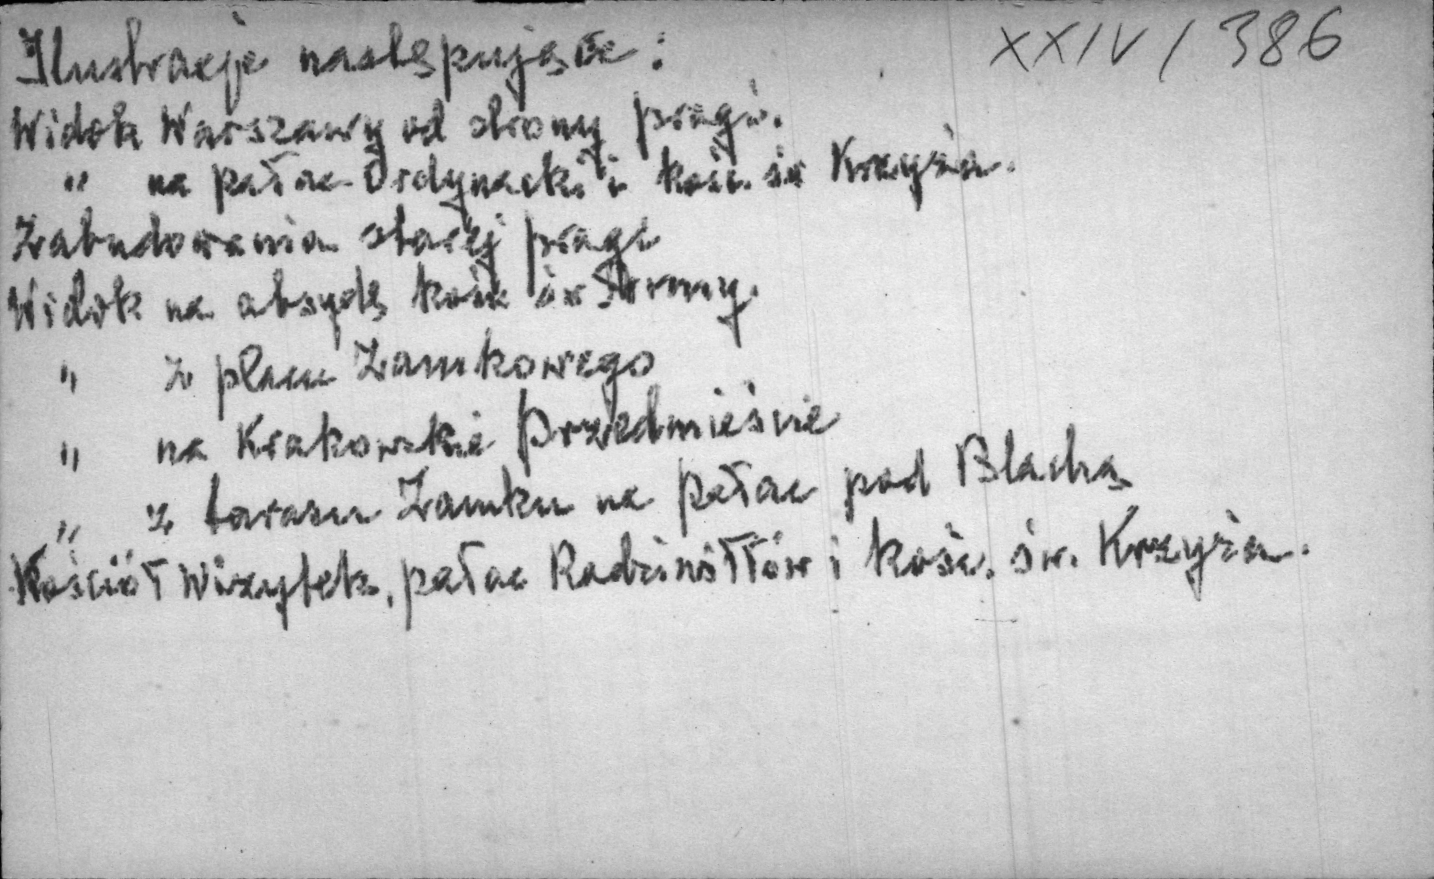 XXIV / 386
Ilustracje następujące :
Widok Warszawy od strony pragi.
" na pałac Ordynacki i kość. św Krzyża.
Zabudowania starej pragi
Widok na absydę kość św Anny.
" z placu Zamkowego
" na Krakowskie Przedmieście
" z tarasu Zamku na pałac pod Blachą
Kościół Wizytek, pałac Radziwiłłów i kość. św. Krzyża.